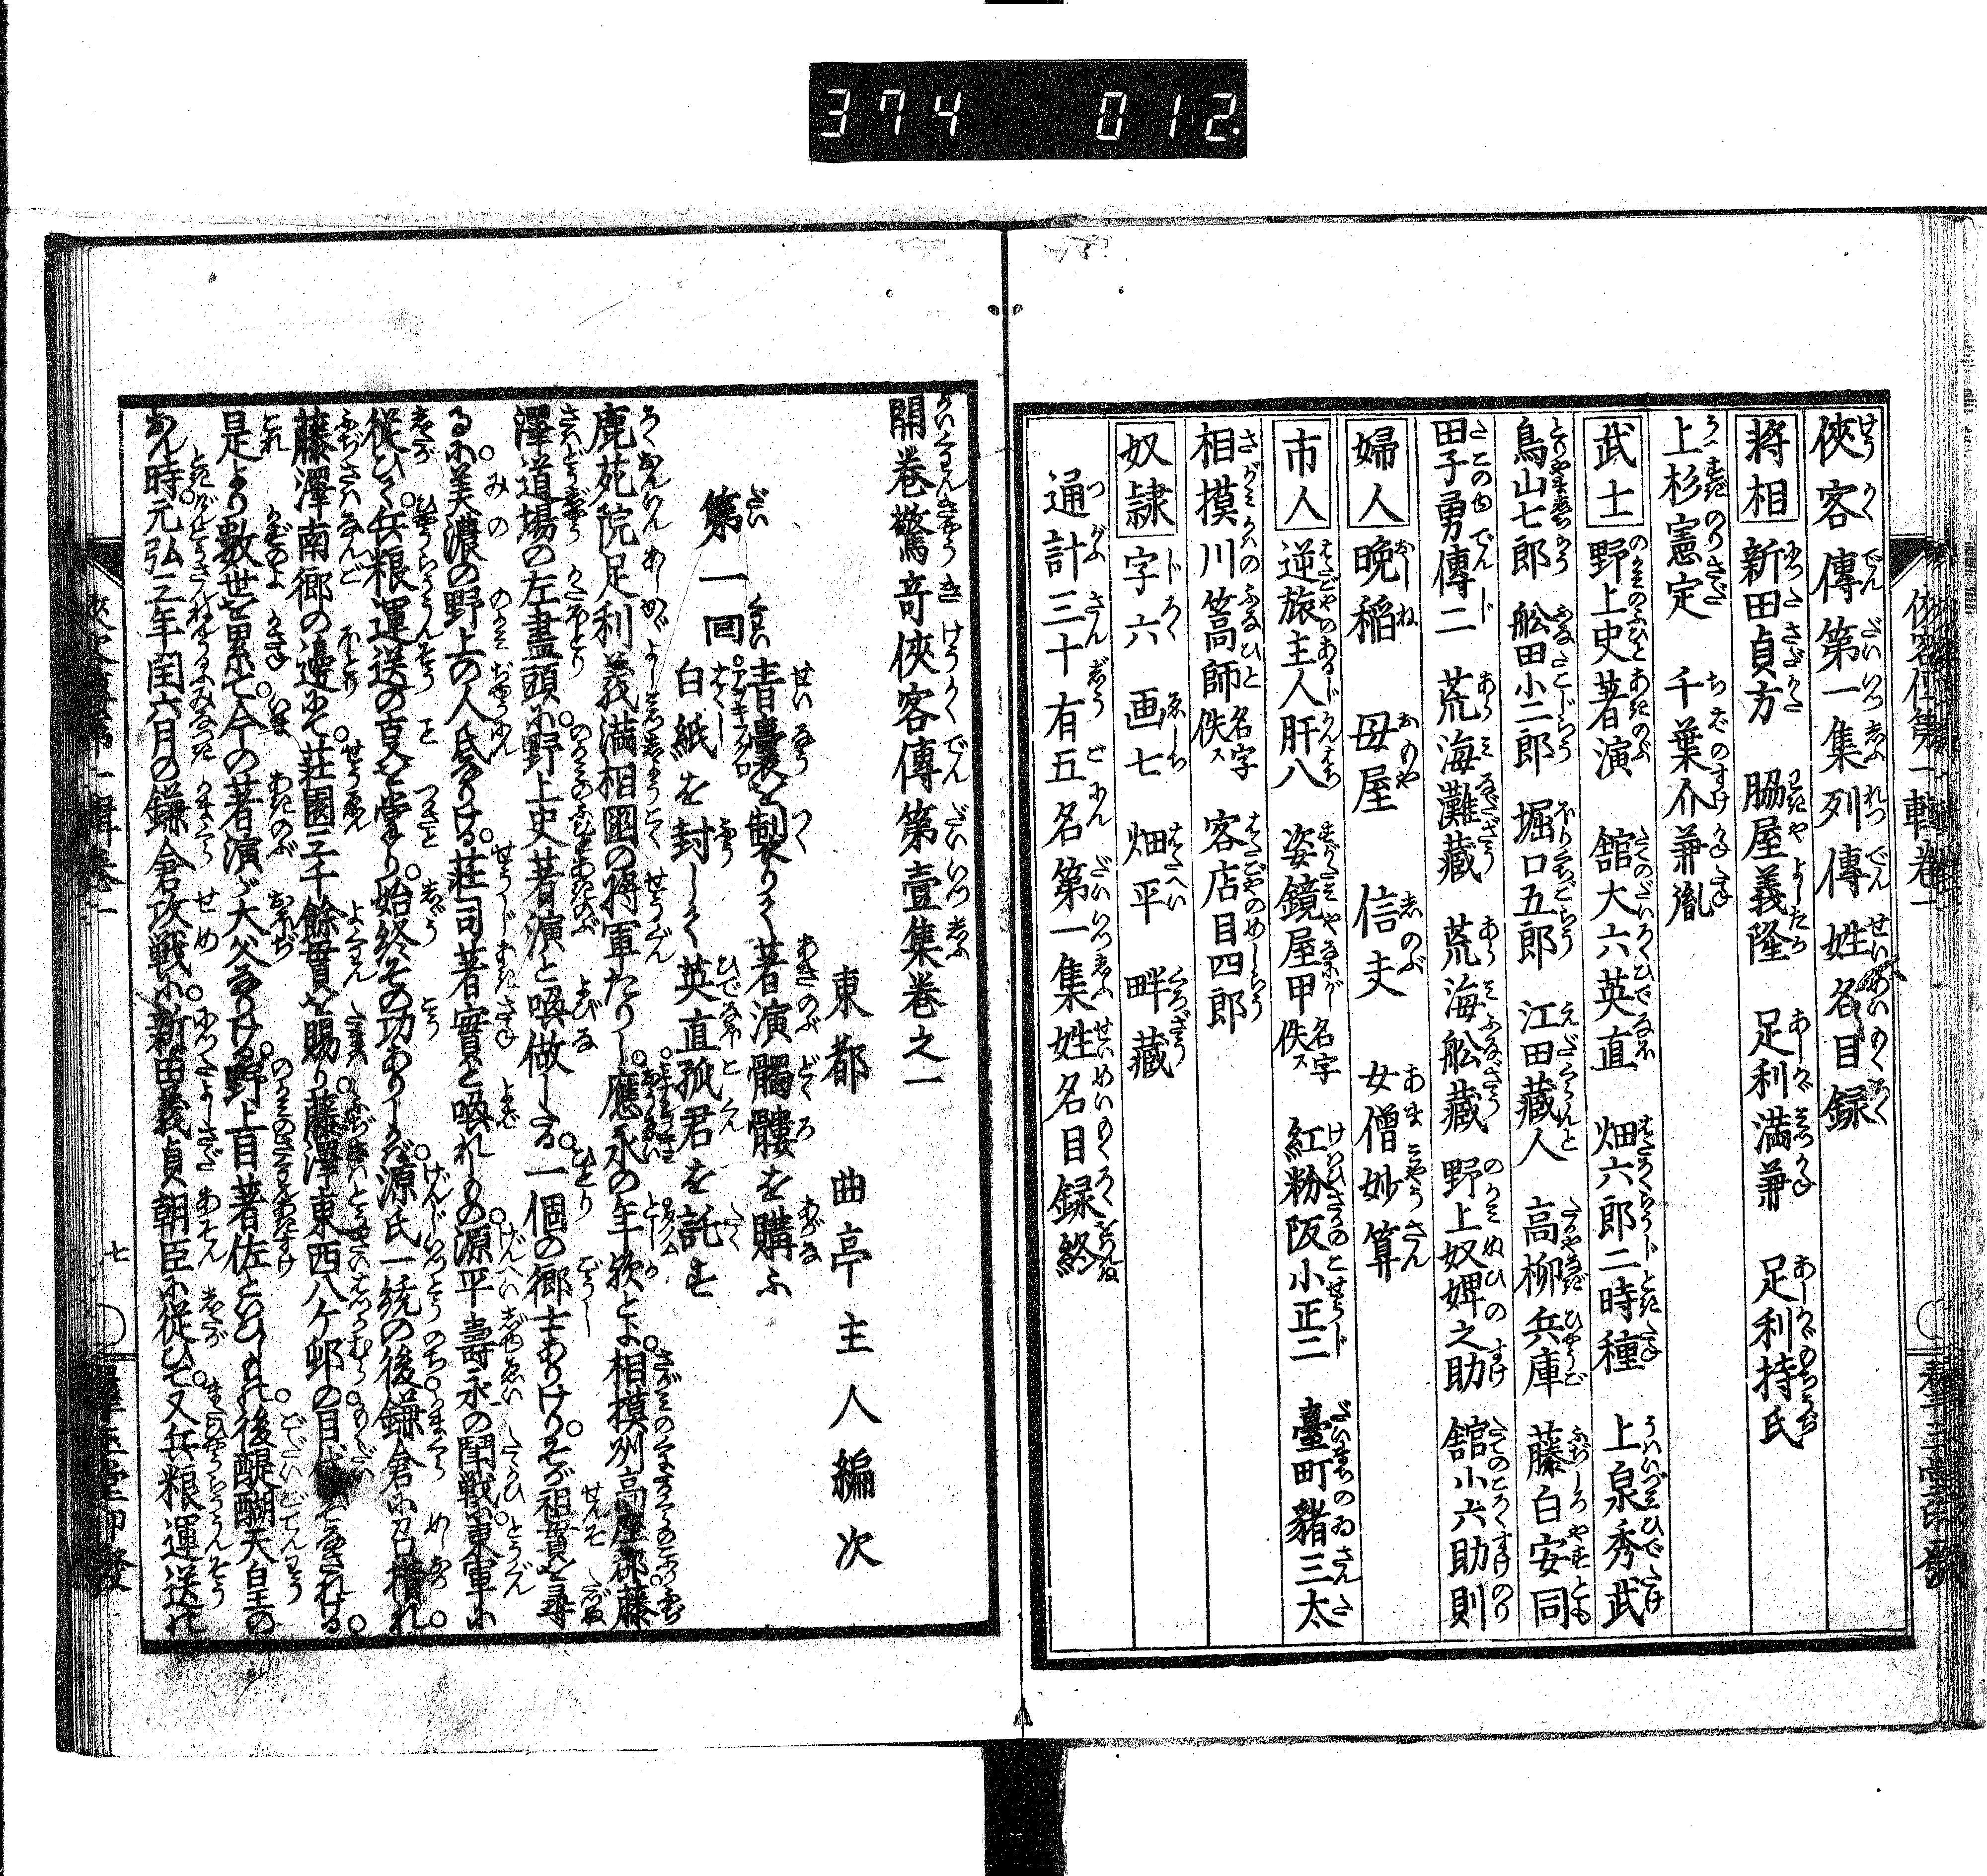 374 012.
侠客傳第一集列傳姓名目録
将相 新田貞方 脇屋義隆 足利満兼 足利持氏
上杉憲定 千葉介兼胤
武士 野上史著演 舘大六英直 畑六郎二時種 上泉秀武
鳥山七郎 舩田小二郎 堀口五郎 江田藏人 高柳兵庫 藤白安同
田子勇傳二 荒海灘藏 荒海舩藏 野上奴婢之助 舘小六助則
婦人 晩稲 母屋 信夫 女僧妙算
市人 逆旅主人肝八 姿鏡屋甲名字佚ス 紅粉阪小正二 臺町猪三太
相摸川篙師名字佚ス 客店目四郎
奴隷 字六 画七 畑平 畔藏
通計三十有五名第一集姓名目録終
開巻驚奇侠客傳第壹集巻之一
東都 曲亭主人編次
第一回 青嚢を製りて著演髑髏を購ふ
白紙を封して英直孤君を託す
鹿苑院足利義満相國の将軍たりし。應永の年欤とよ。相摸州高座郡藤
澤道場の左盡頭に。野上史著演と喚做したる。一個の郷士ありけり。そが祖貫を尋
るに。美濃の野上の人氏なりける。荘司著實と喚れしもの。源平壽永の鬪戦に。東軍に
従ひて。兵粮運送の事を掌り。始終その功ありしかば。源氏一統の後。鎌倉に召措れ。
藤澤南郷の邊にて。荘園三千餘貫を賜り。藤澤東西八ケ邨の目代にぞなされける。
是より數世を累て。今の著演が大父なりける。野上目著佐といひしもの。後醍醐天皇の
おん時。元弘三年閏六月の鎌倉攻戦に。新田義貞朝臣に従ひて。又兵粮運送の
七